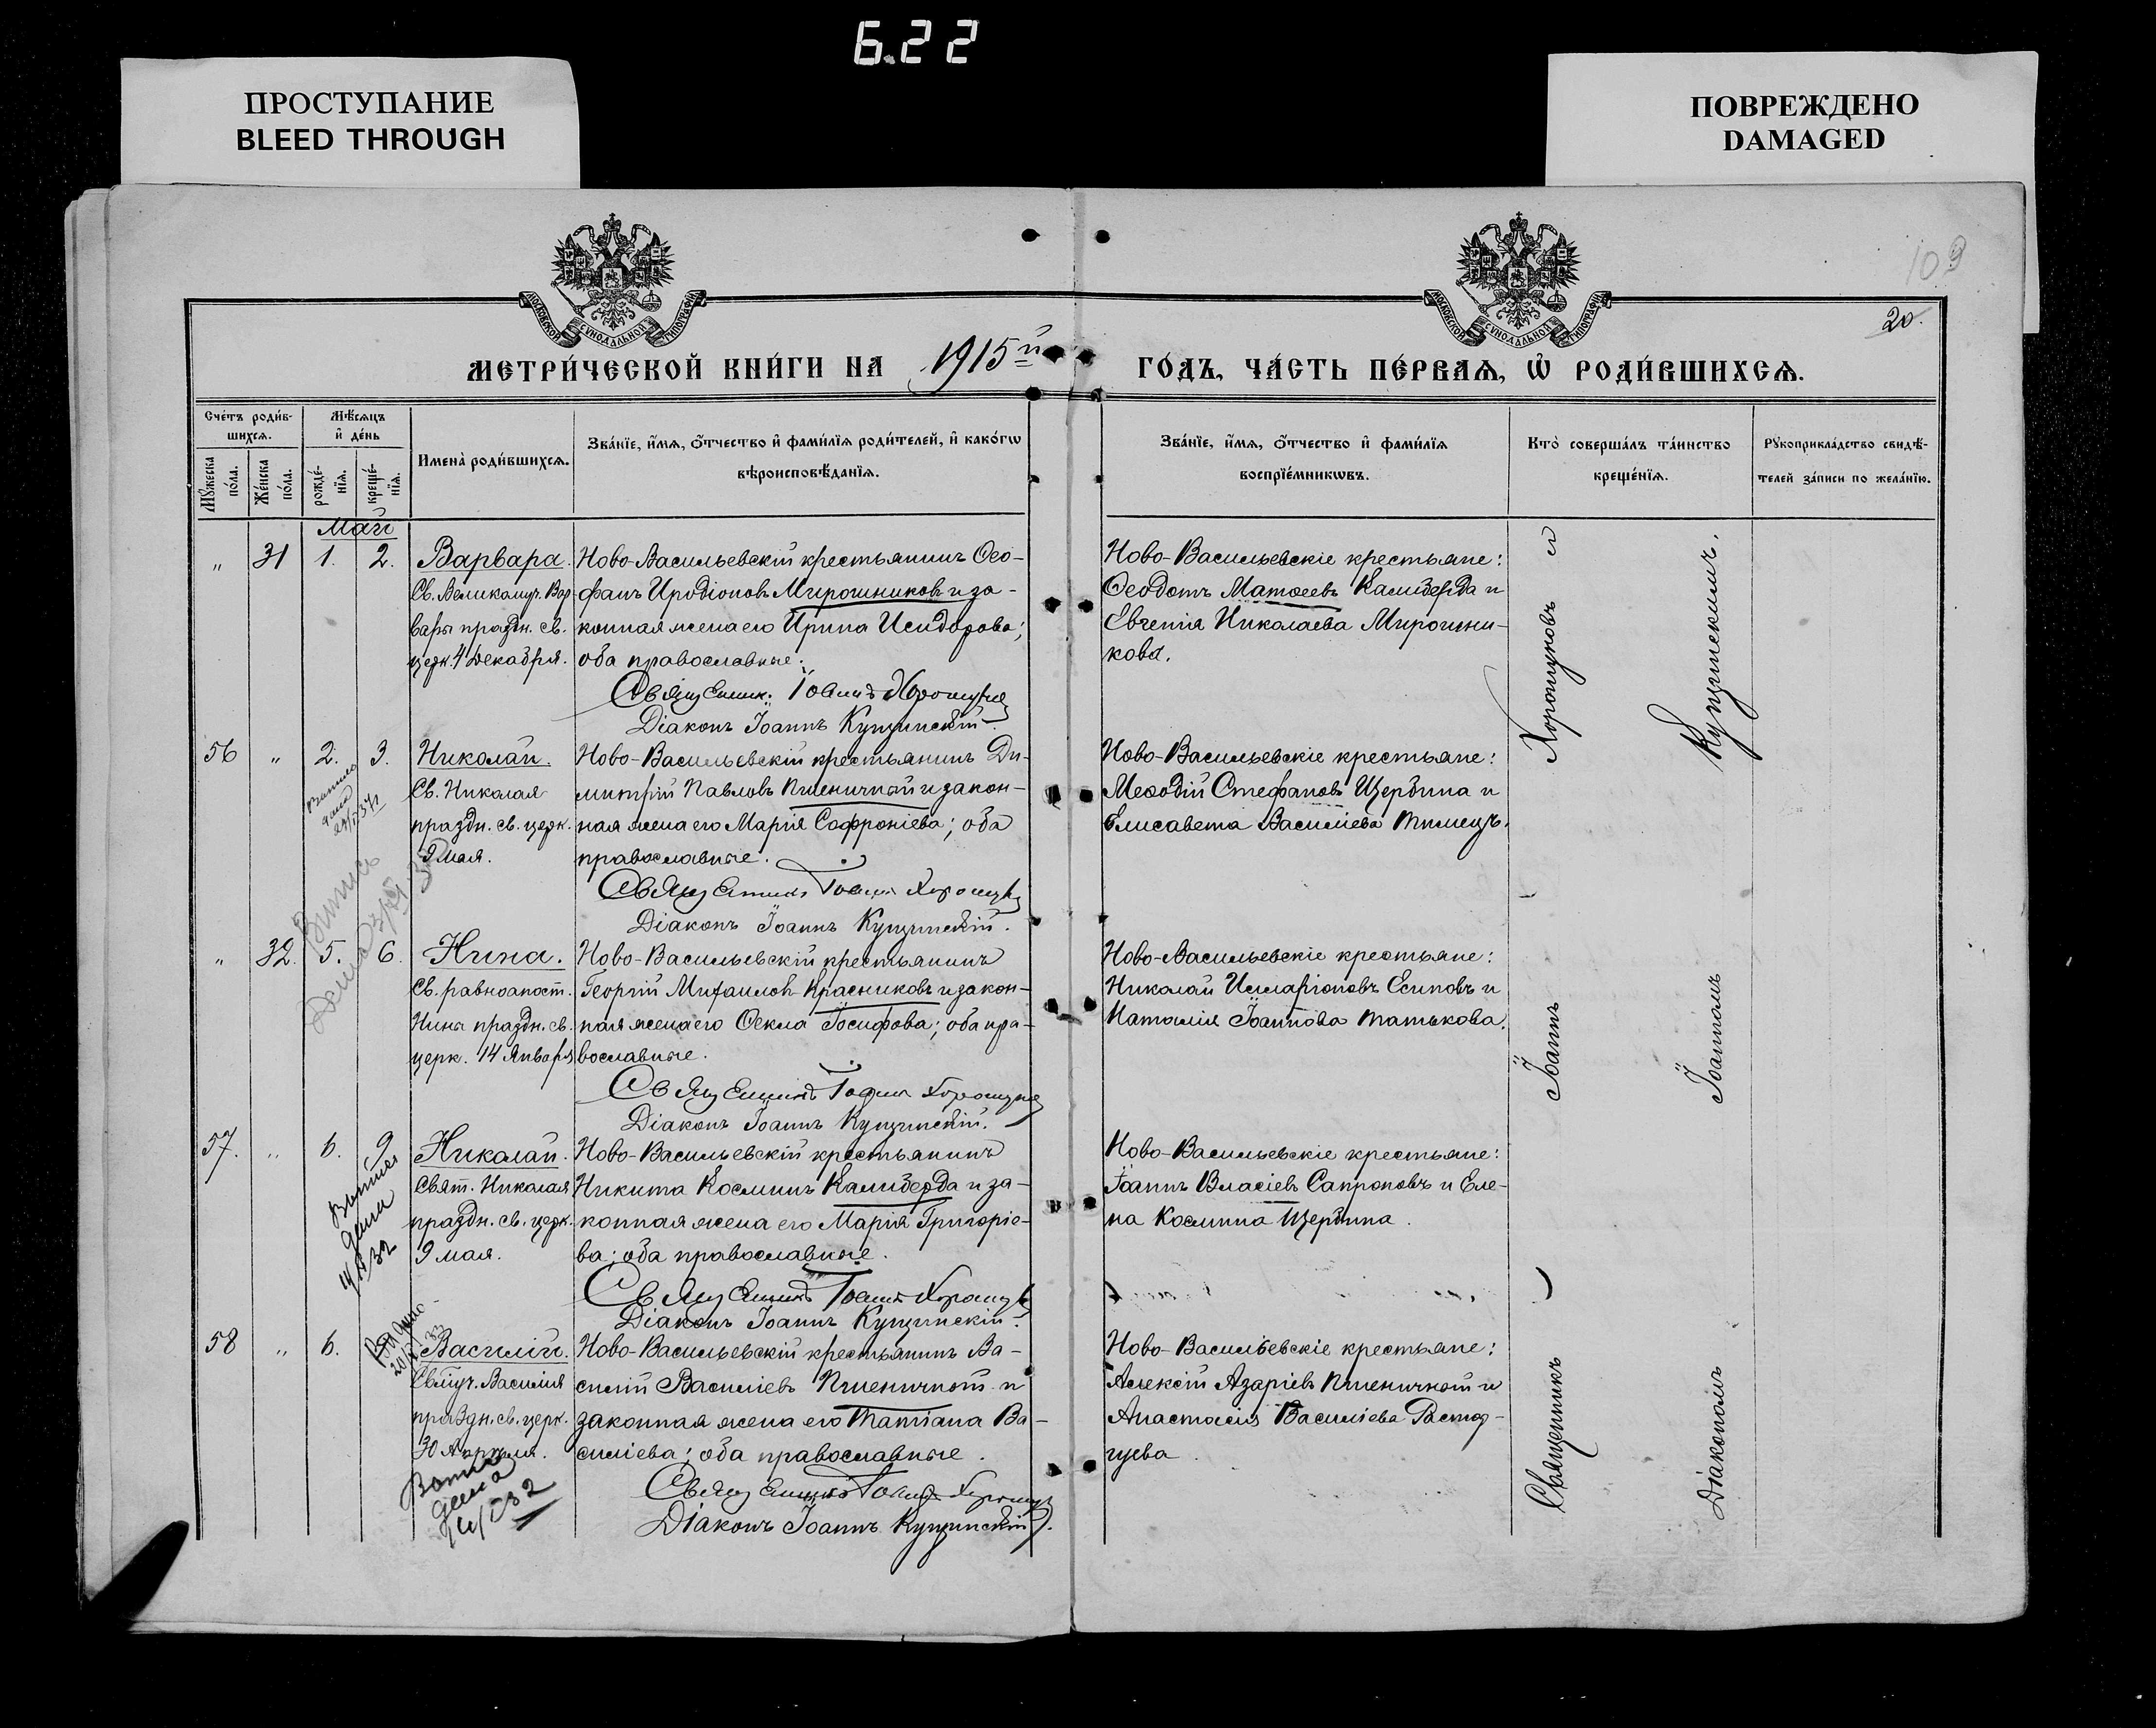 6.22
ПРОСТУПАНИЕ
BLEED THROUGH
ПОВРЕЖДЕНО
DAMAGED
109
20.
МОСКОВСКОЙ СѴНОДАЛЬНОЙ ТИПОГРАФІИ
МОСКОВСКОЙ СѴНОДАЛЬНОЙ ТИПОГРАФІИ
МЕТРИ́ЧЕСКОЙ КНИ́ГИ НА 1915й ГО́ДЪ, ЧА́СТЬ ПЕ́РВАѦ, Ѡ҆ РОДИ́ВШИХСѦ.
Сче́тъ роди́в-
шихсѧ.
Мѣ́сѧцъ
и҆ де́нь
Мꙋ́жеска по́ла.
Же́нска по́ла.
рожде́-
нїѧ.
креще́-
нїѧ.
Имена̀ роди́вшихсѧ.
Зва́нїе, и҆́мѧ, ѻ҆́тчество и҆ фами́лїѧ роди́телей, и҆ како́гѡ
вѣроисповѣ́данїѧ.
Зва́нїе, и҆́мѧ, ѻ҆́тчество и҆ фами́лїѧ
воспрїе́мникѡвъ.
Кто̀ соверша́лъ та́инство
креще́нїѧ.
Рꙋкоприкла́дство свидѣ́-
телей за́писи по жела́нїю.
Май
" 31 1. 2. Варвара.
Св. Великомуч. Вар-
вары праздн. св.
церк. 4 Декабря.
Ново-Васильевскій крестьянинъ Ѳео-
фанъ Иродіоновъ Мирошниковъ и за-
конная жена его Ирина Исидорова;
оба православные.
Священник Іоаннъ Хорошунов
Діаконъ Іоаннъ Кущинскій.
Ново-Васильевскіе крестьяне:
Ѳеодотъ Матѳеевъ Калиберда и
Евгенія Николаева Мирошни-
кова.
56 " 2. 3. Николай.
Св. Николая
праздн. св. церк.
9 мая.
Ново-Васильевскій крестьянинъ Ди-
митрій Павловъ Пшеничной и закон-
ная жена его Марія Софроніева; оба
православные.
Священникъ Іоаннъ
Діаконъ Іоаннъ Кущинскій.
Ново-Васильевскіе крестьяне:
Меѳодій Стефановъ Щербина и
Елисавета Василіева
" 32. 5. 6. Нина.
Св. равноапост.
Нины праздн. св.
церк. 14 Января
Ново-Васильевскій крестьянинъ
Георгій Михаиловъ Красниковъ и закон-
ная жена его Ѳекла Іосифова; оба пра-
вославные.
Священникъ Іоаннъ
Діаконъ Іоаннъ Кущинскій.
Ново-Васильевскіе крестьяне:
Николай Илларіоновъ Есиповъ и
Наталія Іоаннова Татькова.
57. " 6. 9 Николай.
Свят. Николая
праздн. св. церк.
9 мая.
Ново-Васильевскій крестьянинъ
Никита Косминъ Калиберда и за-
конная жена его Марія Григоріе-
ва; оба православные.
Священникъ Іоаннъ
Діаконъ Іоаннъ Кущинскій.
Ново-Васильевскіе крестьяне:
Іоаннъ Власіевъ Сапроновъ и Еле-
на Космина Щербина.
58 " 6. Василій.
Василія
праздн. св. церк.
30 Апрѣля.
Ново-Васильевскій крестьянинъ Ва-
силій Василіевъ Пшеничной и
законная жена его Татіана Ва-
силіева; оба православные.
Священникъ Іоаннъ
Діаконъ Іоаннъ Кущинскій.
Ново-Васильевскіе крестьяне:
Алексій Азаріевъ Пшеничной и
Анастасія Василіева
Священникъ Іоаннъ Хорошуновъ и
Діакономъ Іоанномъ Кущинскимъ.